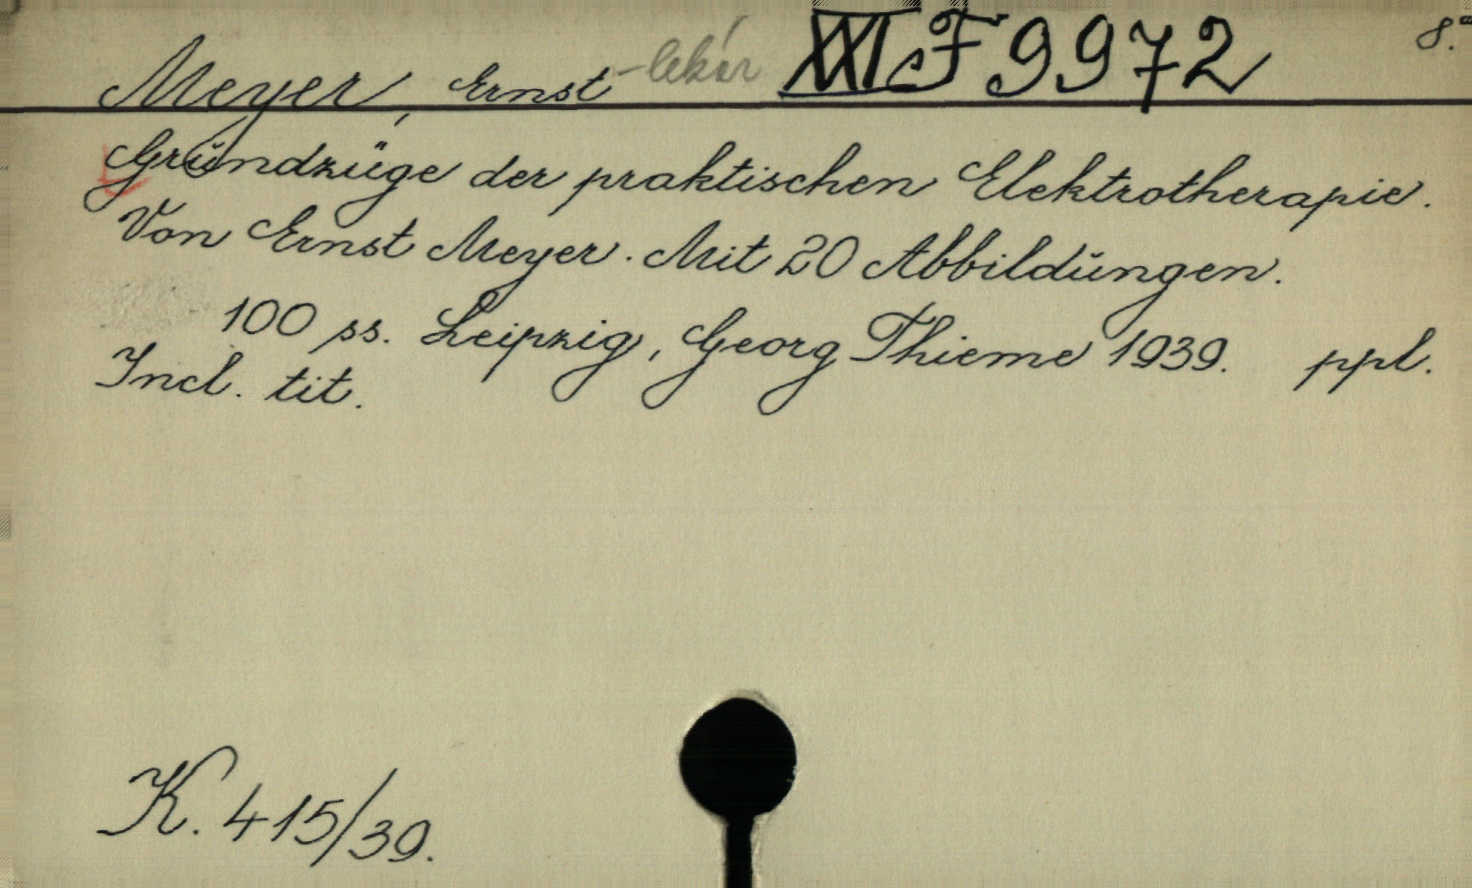 Meyer, Ernst - lekár XXI F 9972 8.°
Grundzüge der praktischen Elektrotherapie.
Von Ernst Meyer. Mit 20 Abbildungen.
100 ss. Leipzig, Georg Thieme 1939. ppl.
Incl. tit.
K. 415/39.